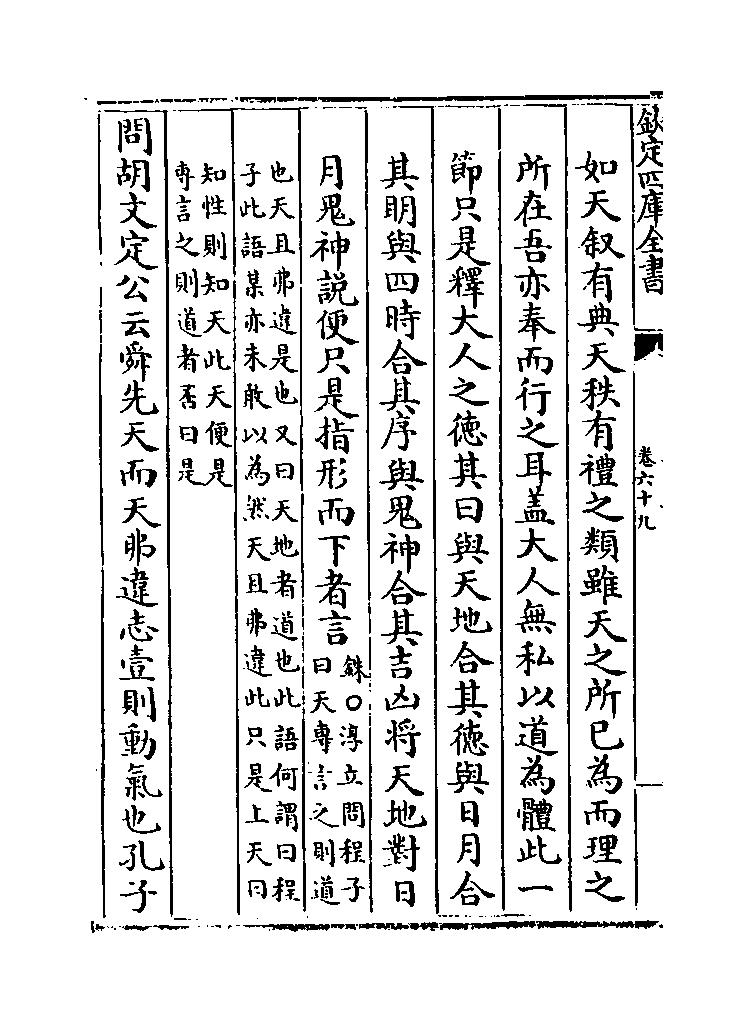 欽定四庫全書
卷六十九
如天叙有典天秩有禮之類雖天之所已為而理之
所在吾亦奉而行之耳蓋大人無私以道為體此一
節只是釋大人之德其曰與天地合其德與日月合
其明與四時合其序與鬼神合其吉凶將天地對日
月鬼神說便只是指形而下者言
銖○淳立問程子
曰天專言之則道
也天且弗違是也又曰天地者道也此語何謂曰程
子此語某亦未敢以為然天且弗違此只是上天曰
知性則知天此天便是
專言之則道者否曰是
問胡文定公云舜先天而天弗違志壹則動氣也孔子